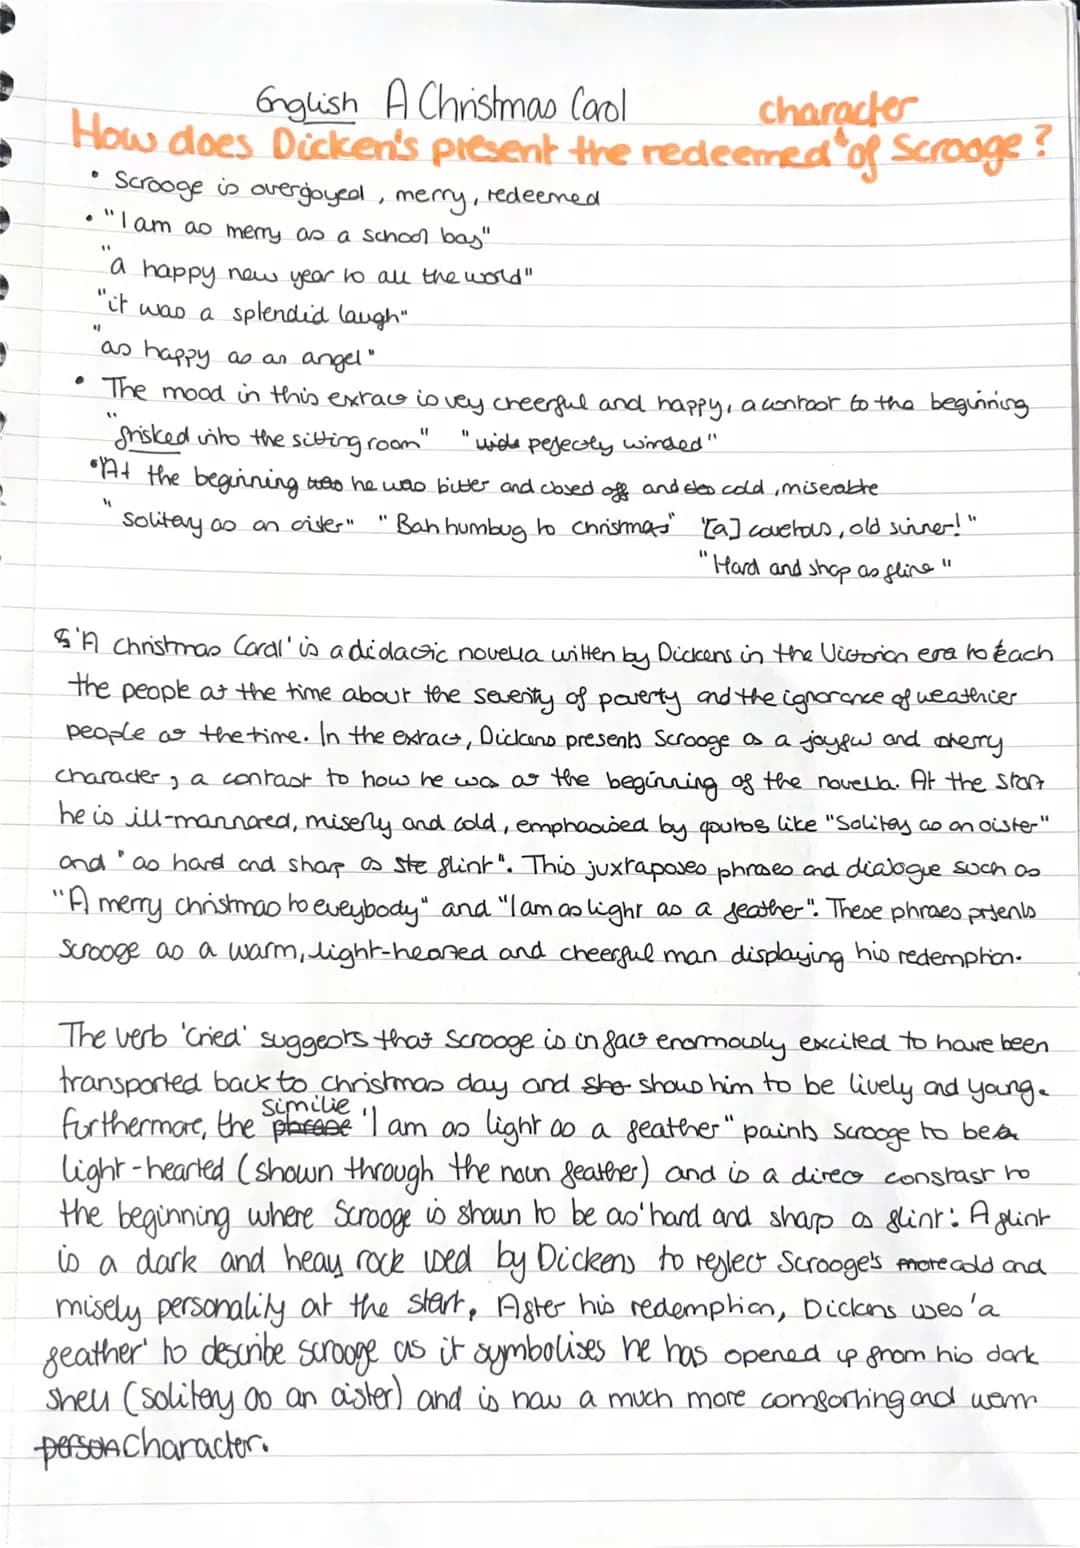 English A Christmas Carol
character
How does Dicken's present the redeemed of Scrooge?
• Scrooge is overjoyed, merry, redeemed
• "I am as merry as a school bay"
"a happy new year to all the world"
"it was a splendid laugh"
"as happy as an angel"
• The mood in this exract is vey cheerful and happy, a contrast to the beginning
"frisked into the sitting room" "wide pefectly winded"
• At the beginning was he was bitter and closed off and cold, miserable
"Solitery as an oister" "Bah humbug to christmas" "[a] covetous, old sinner!"
"Hard and sharp as fline"
'A Christmas Carol' is a didactic novella written by Dickens in the Victorian era to teach
the people at the time about the severity of poverty and the ignorance of wealthier
people at the time. In the extract, Dickens presents Scrooge as a joyful and cherry
character, a contrast to how he was at the beginning of the novella. At the start
he is ill-mannored, miserly and cold, emphasised by qoutes like "Solitery as an oister"
and "as hard and sharp as ste flint". This juxtaposes phrases and dialogue such as
"A merry christmas to eveybody" and "I am as light as a feather". These phraes prsents
Scrooge as a warm, light-hearted and cheerful man displaying his redemption.
The verb 'cried' suggests that Scrooge is in fact enormously excited to have been
transported back to christmas day and sho shows him to be lively and young.
similie
furthermore, the phrase "I am as light as a feather" paints scrooge to be a
light-hearted (shown through the noun feather) and is a direct constrast to
the beginning where Scrooge is shown to be as 'hard and sharp as flint'. A flint
is a dark and heavy rock used by Dickens to reflect Scrooge's more cold and
misely personality at the start. After his redemption, Dickens uses 'a
feather' to describe scrooge as it symbolises he has opened up from his dark
shell (solitery as an oister) and is now a much more comforting and warm
person character.